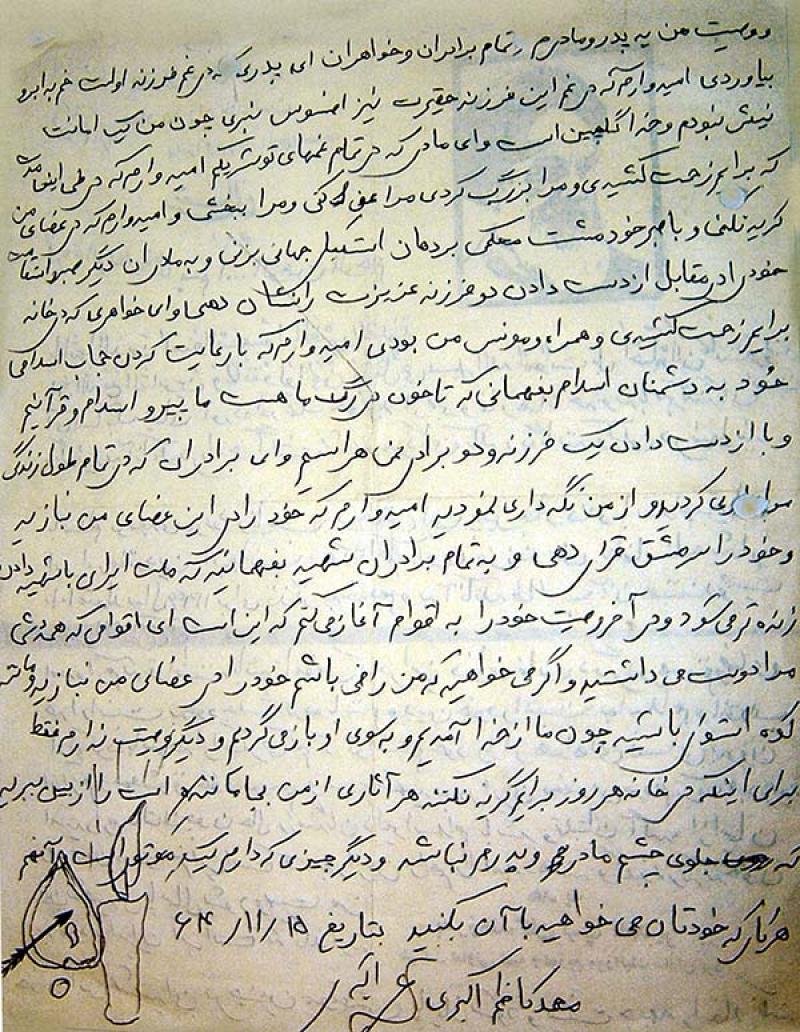 و وصیت من به پدر و مادرم و تمام برادران و خواهران ای پدری که در غم فرزند اولت خم به ابرو
نیاوردی امیدوارم که در غم این فرزند حقیرت نیز افسوس نبری چون من یک امانت
بیش نبودم و خدا گلچین است و ای مادری که در تمام غمهای تو شریکم امیدوارم که در طی اینها مدت
که برایم زحمت کشیدی و مرا بزرگ کردی مرا عفو کنی و مرا ببخشی و امیدوارم که در عضای من
گریه نکنی و با صبر خود مشت محکمی بر دهان استکبار جهانی بزنی و به مادران دیگر صبر و استقامت
خود را در مقابل از دست دادن دو فرزند عزیزت را نشان دهی و ای خواهری که در خانه
برایم زحمت کشیدی و همراه و مونس من بودی امیدوارم که با رعایت کردن حجاب اسلامی
خود به دشمنان اسلام بفهمانی که تا خون در رگ ما هست ما پیرو اسلام و قرآنیم
و با از دست دادن یک فرزند و دو برادر نمی هراسیم و ای برادران که در تمام طول زندگی
مرا یاری کردید و از من نگه داری نمودید امیدوارم که خود را در این عضای من نبازید
و خود را سرمشق قرار دهی و به تمام برادران شهید بفهمانید که ملت ایران با شهید دادن
زنده تر می شود و در آخر وصیت خود را به اقوام آغاز می کنم که این است ای اقوامی که همه شی
مرا دوست می داشتید و اگر می خواهید که من راضی باشم خود را در عضای من نبازید و مانند
کوه استوار باشید چون ما از خدا آمدیم و بسوی او باز می گردیم و دیگر وصیت ندارم فقط
برای اینکه در خانه هر روز برایم گریه نکنند هر آثاری از من بجا مانده است را از بین ببرید
که جلوی چشم مادرم و پدرم نباشد و دیگر چیزی که دارم یک موتور است آنهم
هر کار که خودتان می خواهید با آن بکنید بتاریخ ۶۴/۱۱/۱۵
محمد کاظم اکبری